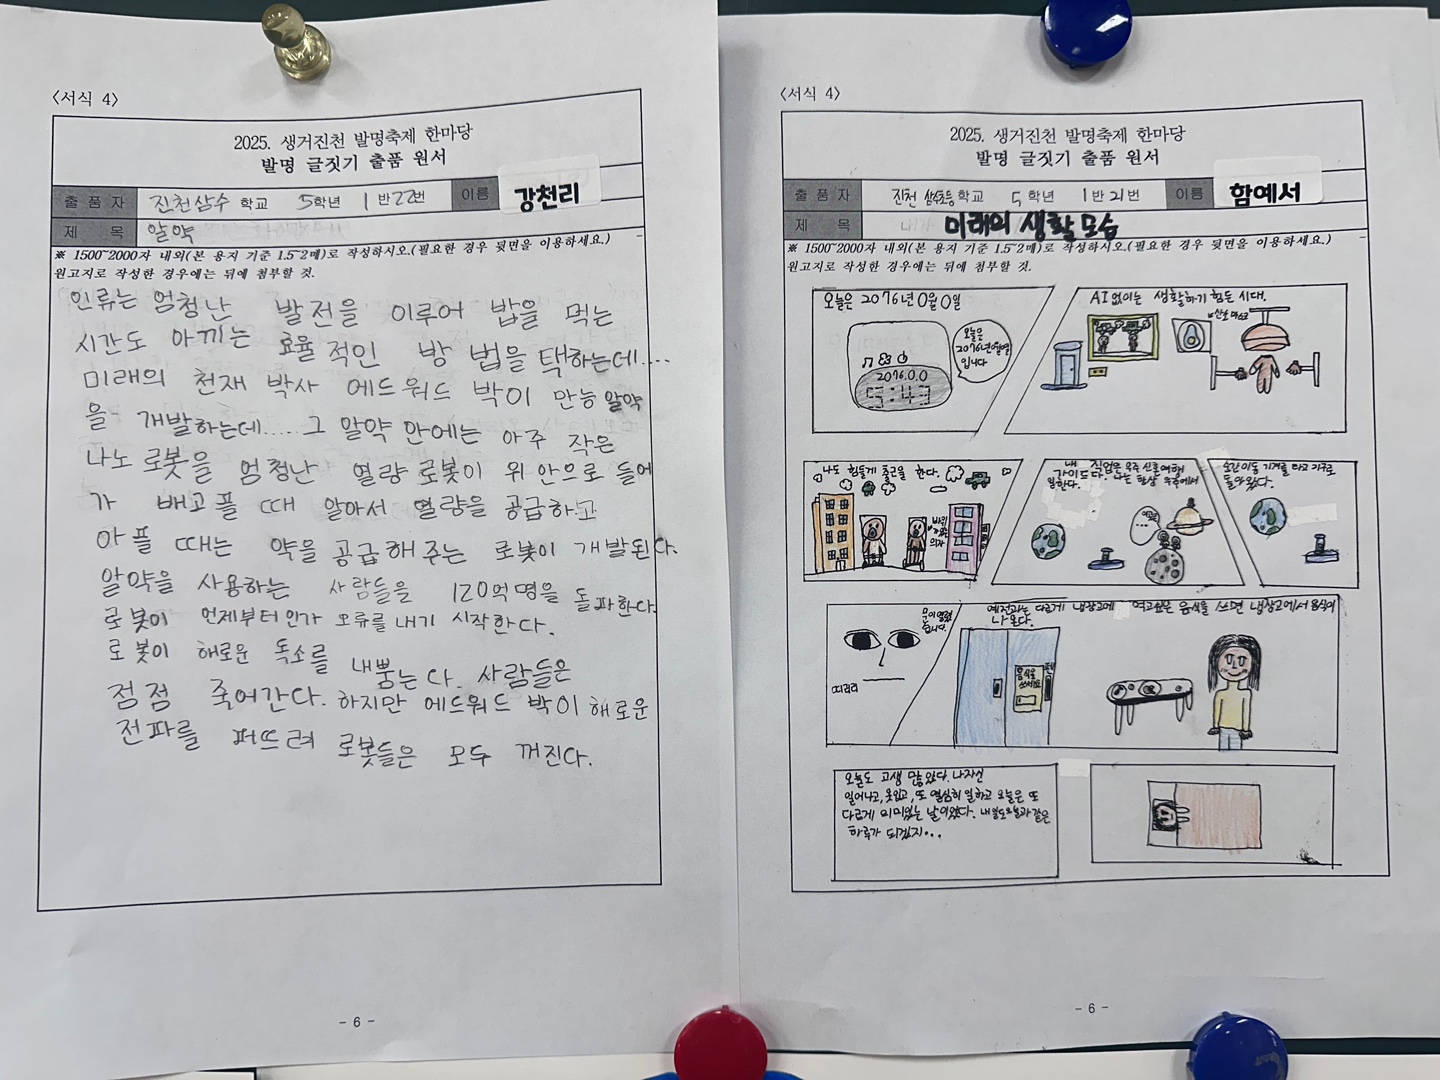 <서식 4>
2025. 생거진천 발명축제 한마당
발명 글짓기 출품 원서
출 품 자 진천삼수 학교 5학년 1반22번 이름 강천리
제 목 알약
※ 1500~2000자 내외(본 용지 기준 1.5~2매)로 작성하시오.(필요한 경우 뒷면을 이용하세요.)
원고지로 작성한 경우에는 뒤에 첨부할 것.
인류는 엄청난 발전을 이루어 밥을 먹는
시간도 아끼는 효율적인 방법을 택하는데....
미래의 천재 박사 에드워드 박이 만능알약
을 개발하는데.....그 알약 안에는 아주 작은
나노 로봇을 엄청난 열량로봇이 위 안으로 들어
가 배고플 때 알아서 열량을 공급하고
아플 때는 약을 공급해주는 로봇이 개발된다.
알약을 사용하는 사람들을 120억명을 돌파한다.
로봇이 언제부터인가 오류를 내기 시작한다.
로봇이 해로운 독소를 내뿜는다. 사람들은
점점 죽어간다. 하지만 에드워드 박이 해로운
전파를 퍼뜨려 로봇들은 모두 꺼진다.
- 6 -
<서식 4>
2025. 생거진천 발명축제 한마당
발명 글짓기 출품 원서
출 품 자 진천 삼수초등학교 5학년 1반21번 이름 함예서
제 목 미래의 생활모습
※ 1500~2000자 내외(본 용지 기준 1.5~2매)로 작성하시오.(필요한 경우 뒷면을 이용하세요.)
원고지로 작성한 경우에는 뒤에 첨부할 것.
오늘은 2076년 0월 0일
오늘은
2076년0월0일
입니다
2076.0.0
5:43
AI없이는 생활하기 힘든 시대.
산소마스크
나도 힘들게 출근을 한다.
바퀴
의자
내 직업은 우주 신혼여행
가이드다. 나는 항상 우주에서
일한다.
순간이동 기계를 타고 지구로
돌아왔다.
문이열렸
습니다.
띠리리
예전과는 다르게 냉장고에 먹고싶은 음식을 쓰면 냉장고에서 음식이
나온다.
음식을
쓰세요
오늘도 고생 많았다. 나자신
일어나고, 옷입고, 또 열심히 일하고 오늘은 또
다르게 의미있는 날이었다. 내일도오늘과같은
하루가 되겠지...
- 6 -